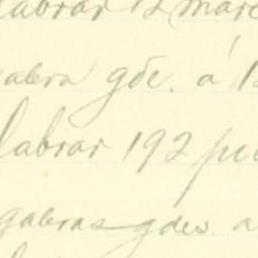 labrar 12 marc
gabra gde. á 1
labrar 192 pie
gabras gdes a